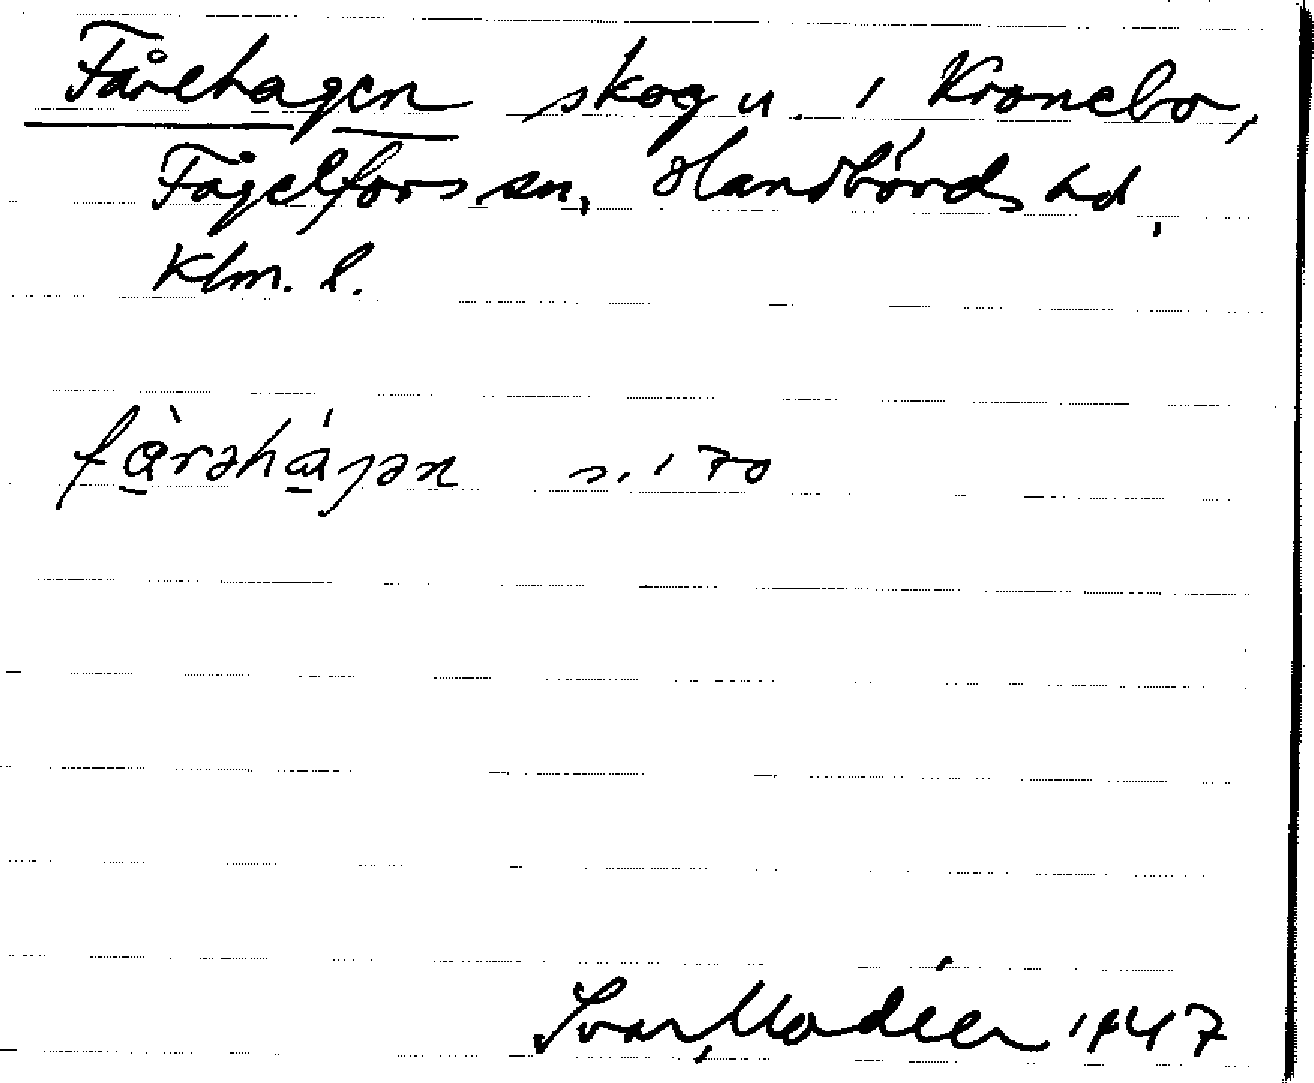 Fårehagen skog u. i Kronebo,
Fågelfors sn, Handbörds hd,
Klm. l.
fàrəháɡən s. 170
Ivar Modéer 1947